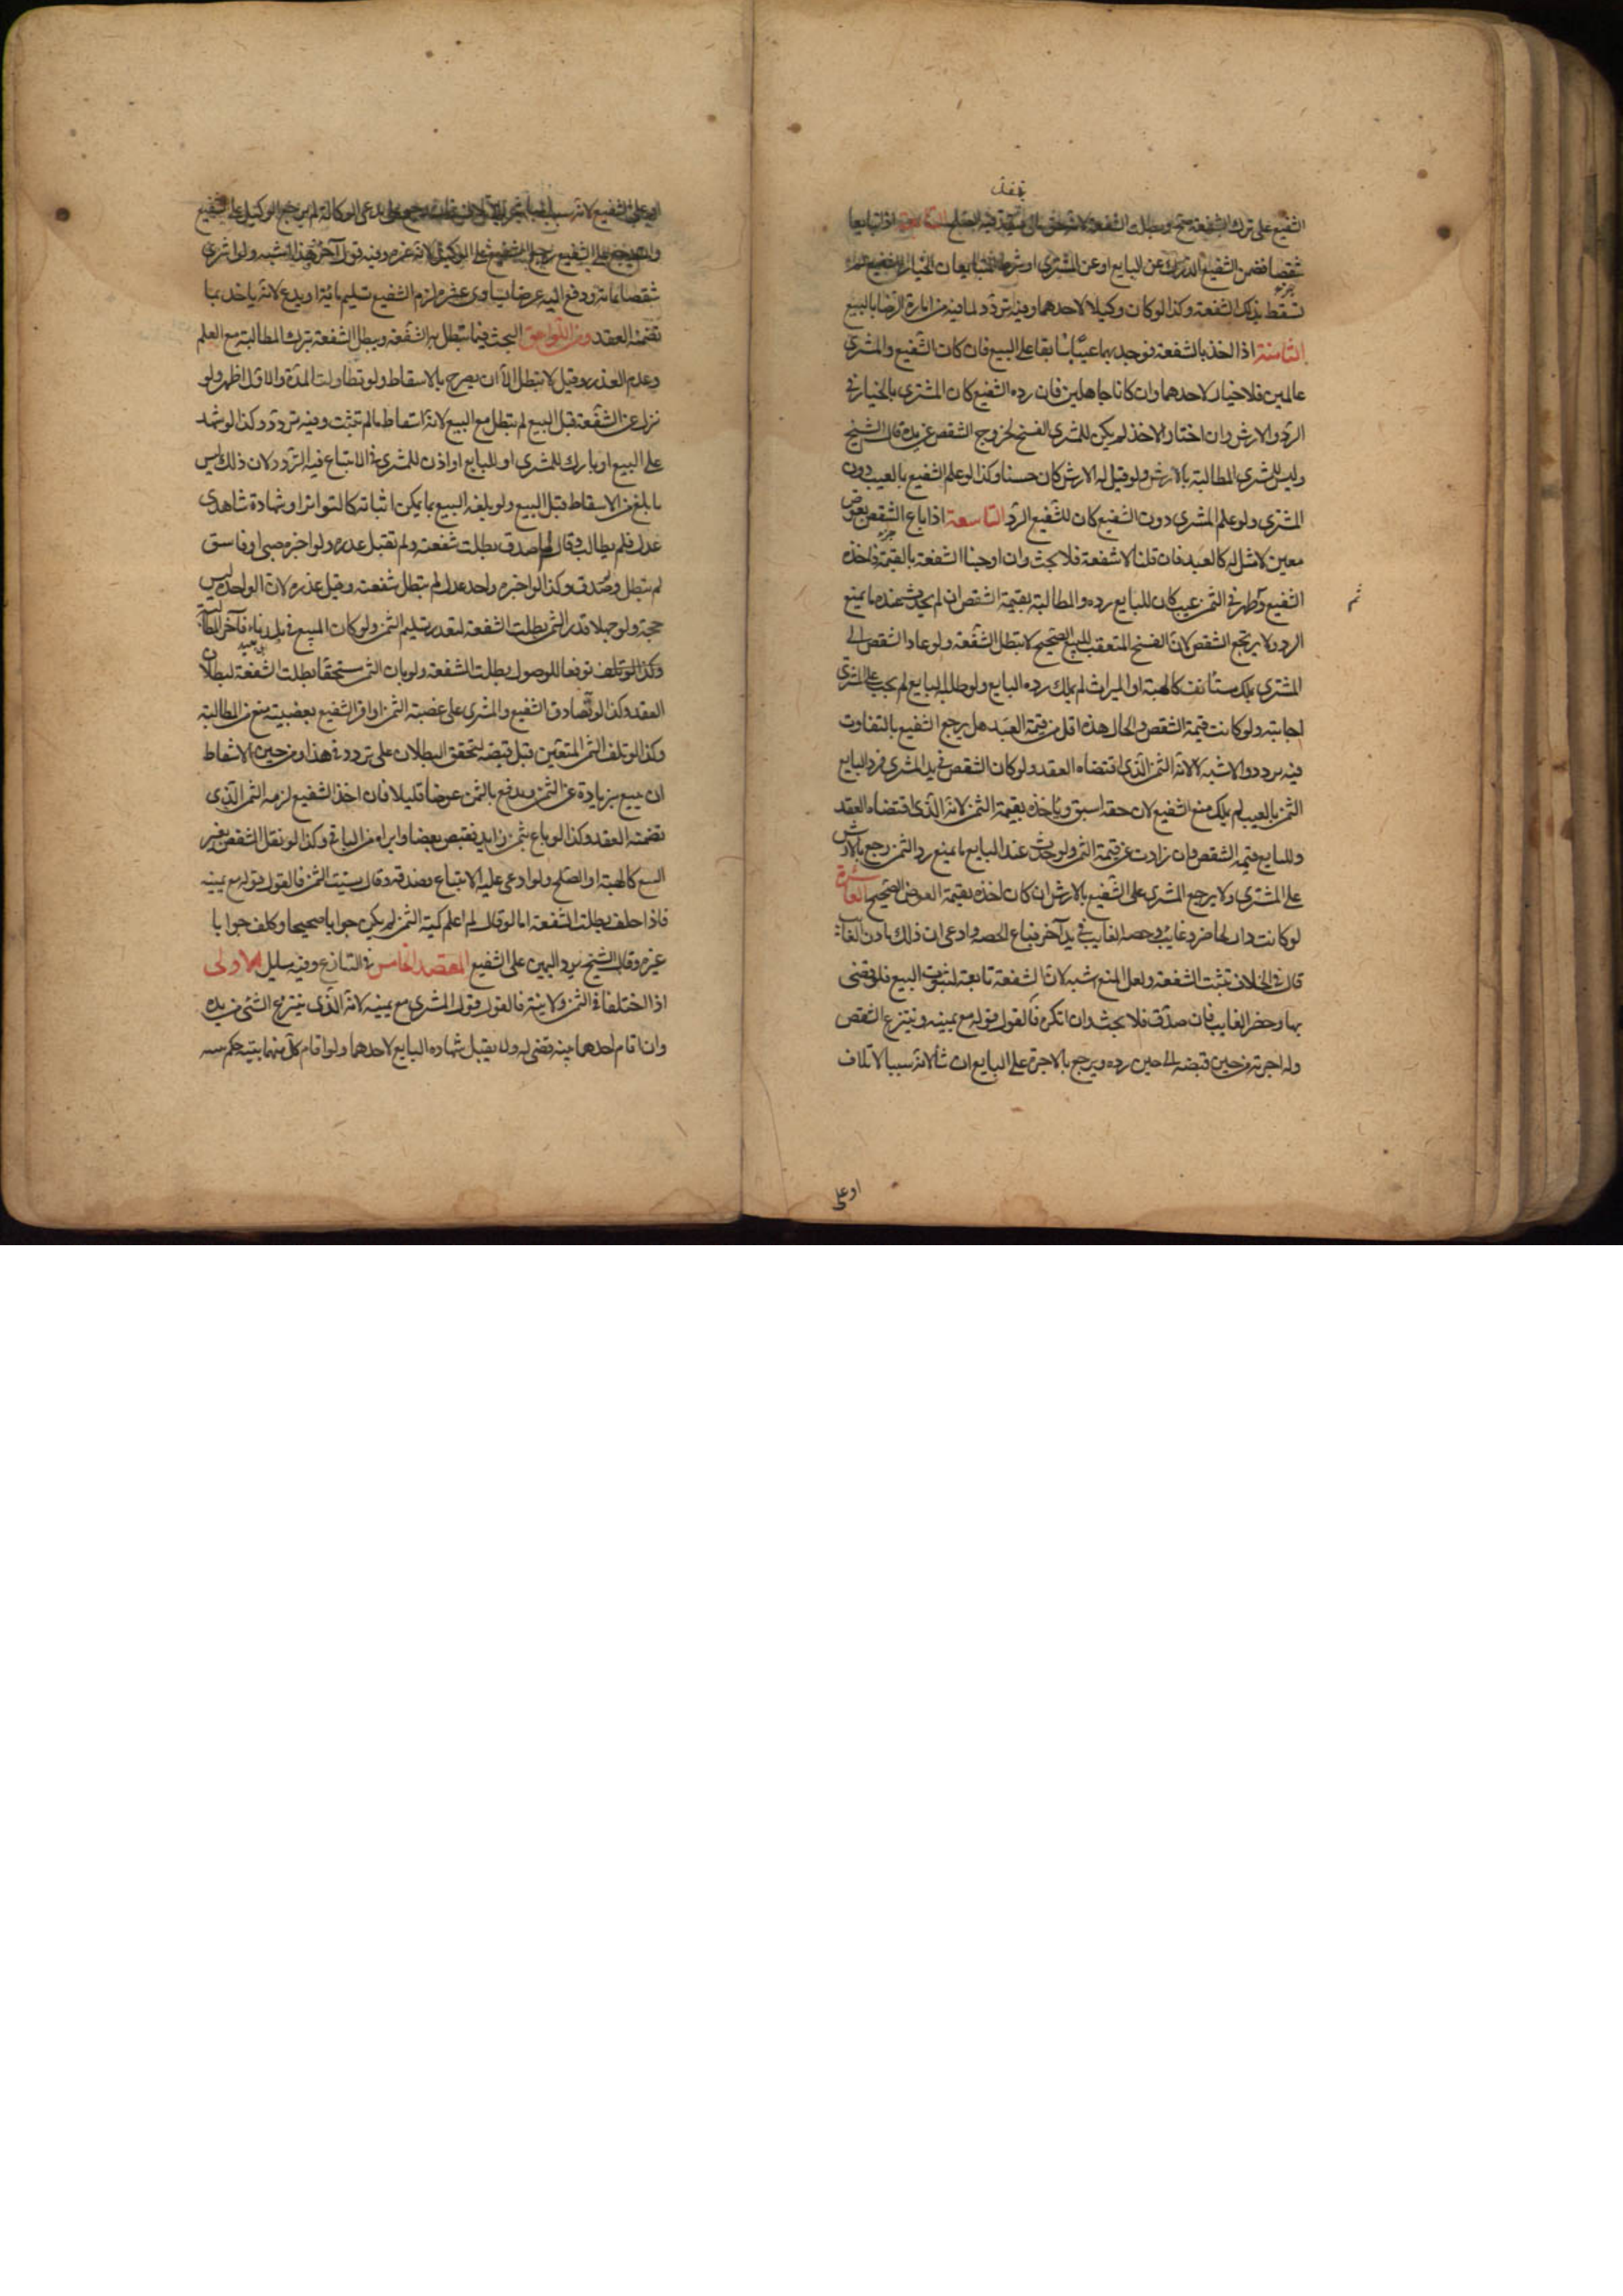 الشفيع على ترك الشفعة صح وبطلت الشفعة لانه حق مالى فينفذ فيه الصلح السابعة اذا تبايعا
شقصا فضمن الشفيع الدرك عن البايع او عن المشترى او شرط المتبايعان الخيار للشفيع لم
تسقط بذلك الشفعة وكذا لو كان وكيلا لاحدهما وفيه تردد لما فيه من امارة الرضا بالبيع
الثامنة اذا اخذ بالشفعة فوجد بها عيبا سابقا على البيع فان كان الشفيع والمشترى
عالمين فلا خيار لاحدهما وان كانا جاهلين فان رده الشفيع كان المشترى بالخيار فى
الرد والارش وان اختار الاخذ لم يكن للمشترى الفسخ لخروج الشقص عن يده قال الشيخ
وليس للمشترى المطالبة بالارش ولو قيل له الارش كان حسنا وكذا لو علم الشفيع بالعيب دون
المشترى ولو علم المشترى دون الشفيع كان للشفيع الرد التاسعة اذا باع الشقص بعوض
معين لا مثل له كالعبد فان قلنا لا شفعة فلا بحث وان اوجبنا الشفعة بالقيمة فاخذه
الشفيع وظهر فى الثمن عيب كان للبايع رده والمطالبة بقيمة الشقص ان لم يحدث عنده ما يمنع
الرد ولا يرتجع الشقص لان الفسخ المتعقب للبيع الصحيح لا يبطل الشفعة ولو عاد الشقص الى
المشترى بملك مستأنف كالهبة او الميراث لم يملك رده البايع ولو طلبه البايع لم يجب على المشترى
اجابته ولو كانت قيمة الشقص والحال هذه اقل من قيمة العبد هل يرجع الشفيع بالتفاوت
فيه تردد والاشبه لا لانه الثمن الذى اقتضاه العقد ولو كان الشقص فى يد المشترى فرد البايع
الثمن بالعيب لم يملك منع الشفيع لان حقه اسبق وياخذه بقيمة الثمن لانه الذى اقتضاه العقد
وللبايع قيمة الشقص وان زادت عن قيمة الثمن ولو حدث عند البايع ما يمنع رد الثمن رجع بالارش
على المشترى ولا يرجع المشترى على الشفيع بالارش ان كان اخذه بقيمة العوض الصحيح العاشرة
لو كانت دار لحاضر وغايب وحصة الغايب فى يد آخر فباع الحصة وادعى ان ذلك باذن الغايب
قال فى الخلاف تثبت الشفعة ولعل المنع اشبه لان الشفعة تابعة لثبوت البيع فلو قضى
بها وحضر الغايب فان صدق فلا بحث وان انكره فالقول قوله مع يمينه وينتزع الشقص
وله اجرته من حين قبضه الى حين رده ويرجع بالاجرة على البايع ان شاء لانه سبب الاتلاف
او على
او على الشفيع لانه سبب
شقصا بمائة ودفع اليه عرضا يساوى عشرة لزم الشفيع تسليم مائة او يدع لانه ياخذ بما
تضمنه العقد ومن اللواحق البحث فيما تبطل به الشفعة ويبطل الشفعة بترك المطالبة مع العلم
وعدم العذر وقيل لا تبطل الا ان يصرح بالاسقاط ولو تطاولت المدة والاول اظهر ولو
نزل عن الشفعة قبل البيع لم تبطل مع البيع لانه اسقاط ما لم تثبت وفيه تردد وكذا لو شهد
على البيع او بارك للمشترى او للبايع او اذن للمشترى فى الابتياع فيه التردد لان ذلك ليس
بابلغ من الاسقاط قبل البيع ولو بلغه البيع بما يمكن اثباته كالتواتر او شهادة شاهدى
عدل فلم يطالب وقال لم اصدق بطلت شفعته ولم تقبل عذره ولو اخبره صبى او فاسق
لم تبطل وصدق وكذا لو اخبره واحد عدل لم تبطل شفعته وقبل عذره لان الواحد ليس
حجة ولو جهلا قدر الثمن بطلت الشفعة لتعذر تسليم الثمن ولو كان المبيع فى بلد ناء فآخر المطالبة
توقعا للوصول بطلت الشفعة ولو بان الثمن مستحقا بطلت الشفعة لبطلان
العقد وكذا لو تصادق الشفيع والمشترى على غصبية الثمن او اقر الشفيع بغصبيته منع من المطالبة
وكذا لو تلف الثمن المتعين قبل قبضه لتحقق البطلان على تردد فى هذا ومن حيل الاسقاط
ان يبيع بزيادة عن الثمن ويدفع بالثمن عوضا قليلا فان اخذ الشفيع لزمه الثمن الذى
تضمنه العقد وكذا لو باع بثمن زايد فقبض بعضا وابراه من الباقى وكذا لو نقل الشقص بغير
البيع كالهبة او الصلح ولو ادعى عليه الابتياع فصدقه وقال نسيت الثمن فالقول قوله مع يمينه
فاذا حلف بطلت الشفعة اما لو قال لم اعلم كمية الثمن لم يكن جوابا صحيحا وكلف جوابا
غيره وقال الشيخ يرد اليمين على الشفيع المقصد الخامس فى التنازع وفيه مسايل الاولى
اذا اختلفا فى الثمن ولا بينة فالقول قول المشترى مع يمينه لانه الذى ينتزع الشىء من يده
وان اقام احدهما بينة قضى له ولا يقبل شهادة البايع لاحدهما ولو اقام كل منهما بينة حكم